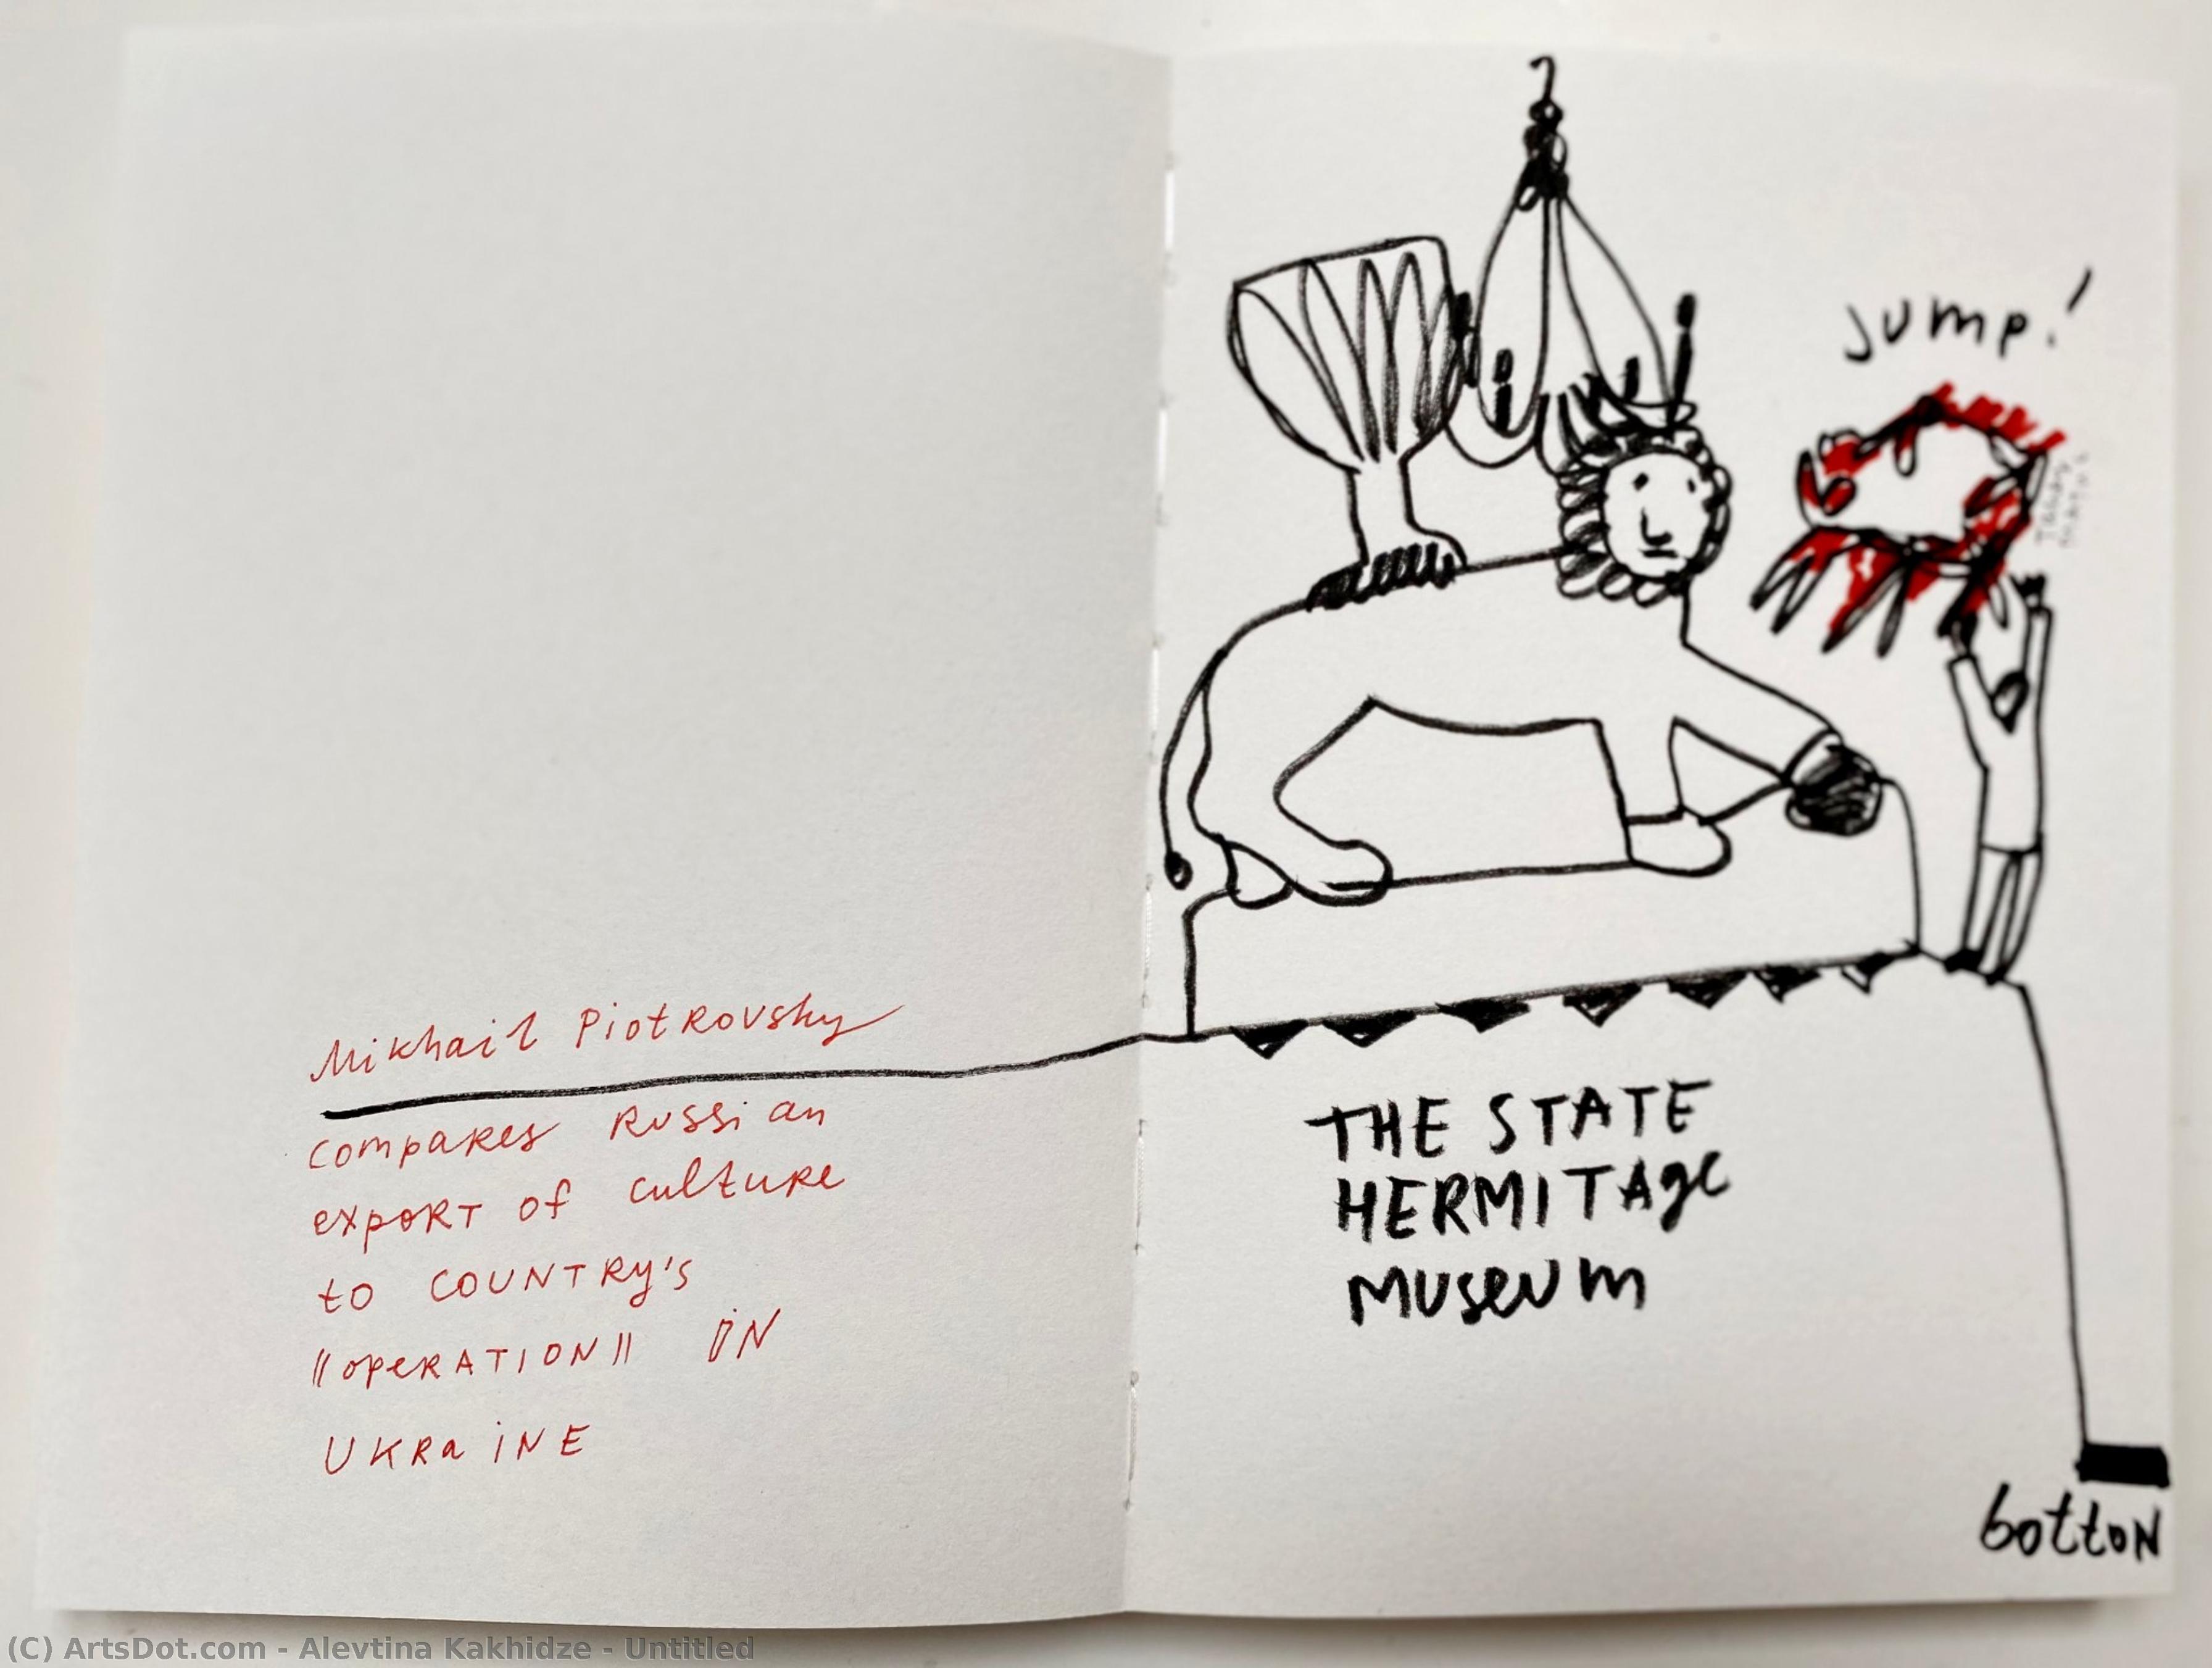 Mikhail Piotrovsky
compares Russian
export of culture
to country's
"operation" in
Ukraine
Jump!
THE STATE
HERMITAge
Museum
botton
(C) ArtsDot.com - Alevtina Kakhidze - Untitled